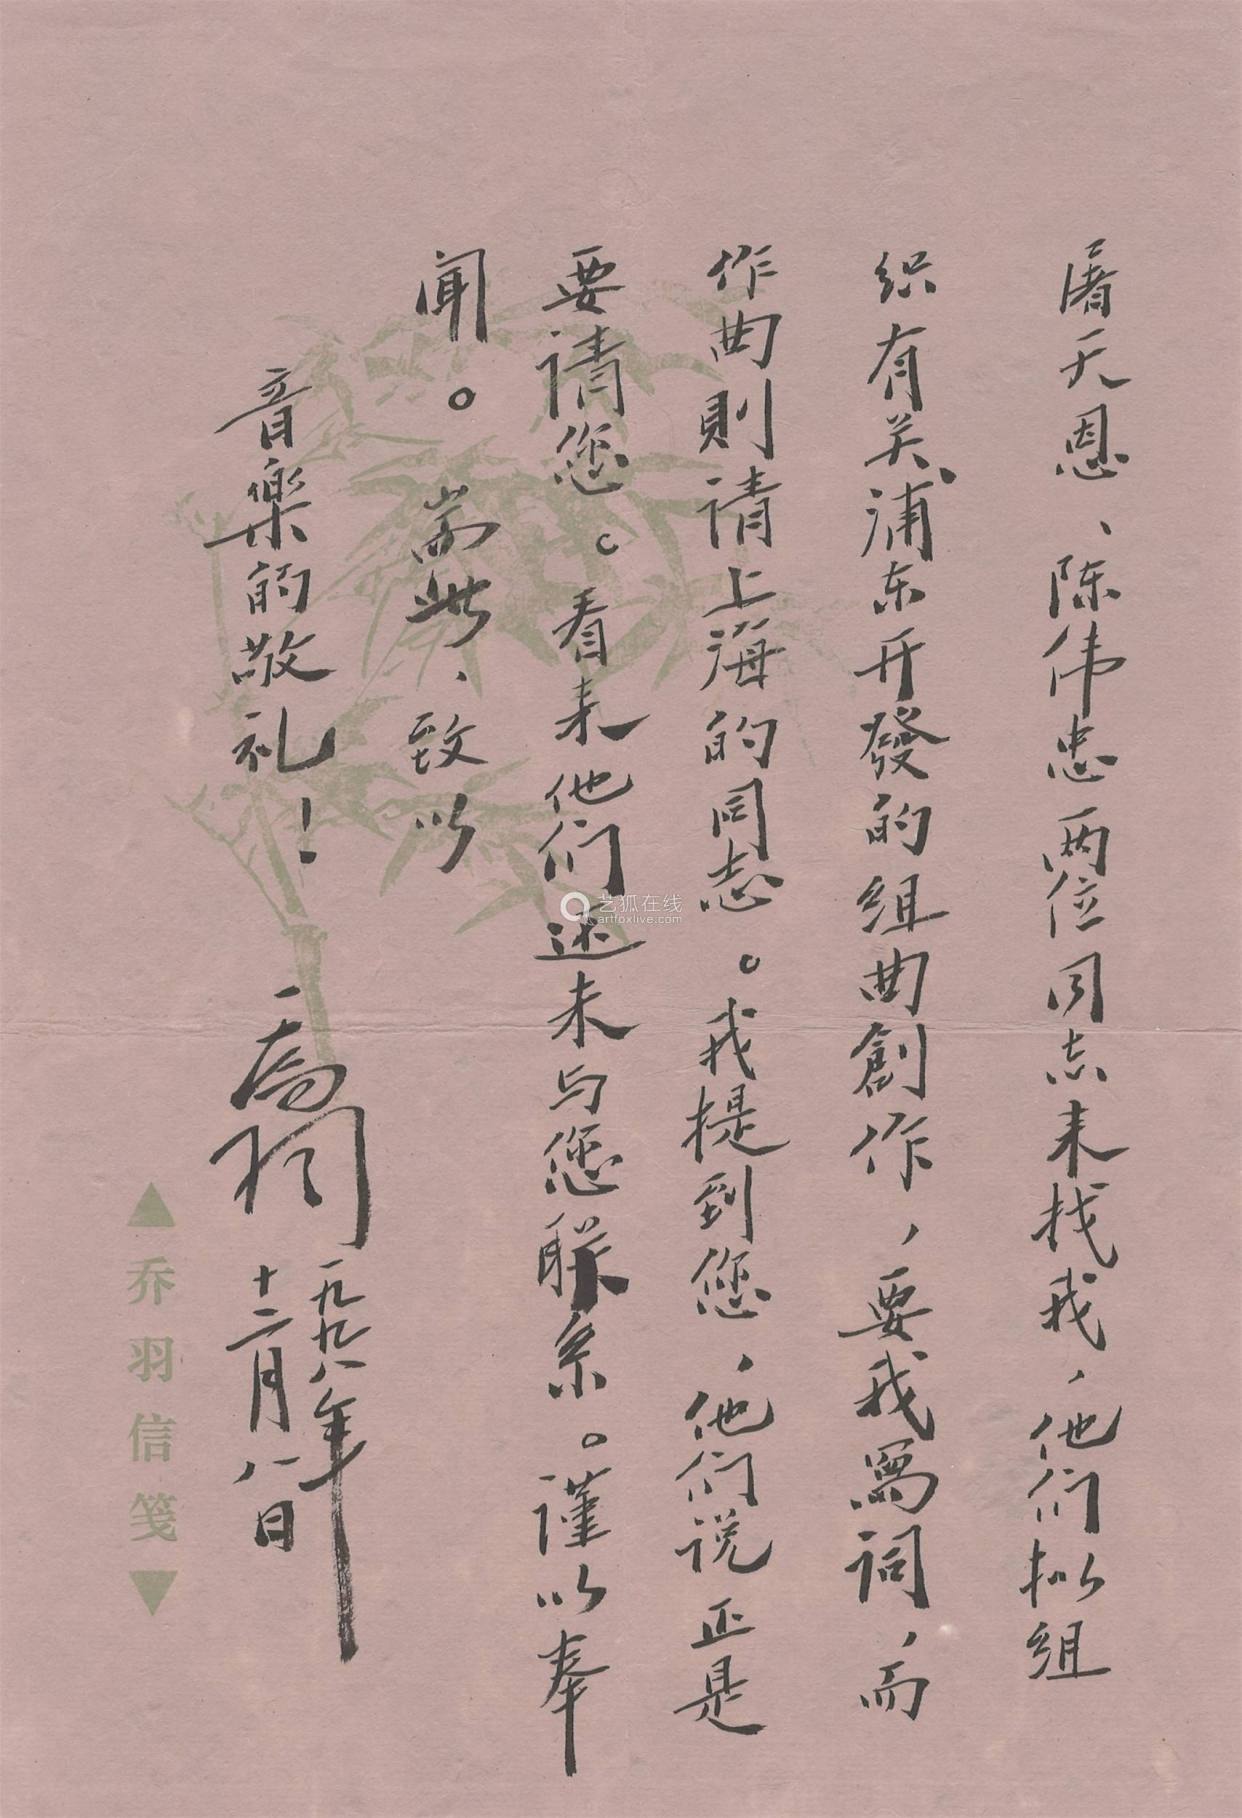 屠天恩、陈伟忠两位同志来找我，他们拟组
织有关浦东开發的组曲創作，要我寫词，而
作曲則请上海的同志。我提到您，他们说正是
要请您。看来他们还未与您联系。谨以奉
闻。耑此、致以
音樂的敬礼！
喬羽
一九九八年
十二月八日
▲乔羽信笺▼
艺狐在线
artfoxlive.com